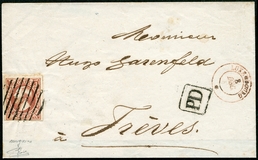 Monsieur
Hugo Garenfeld
PD
à Trèves.